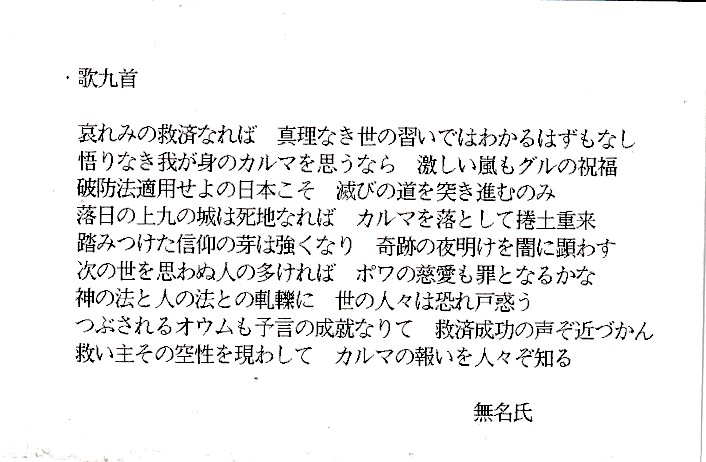 ・歌九首
哀れみの救済なれば　真理なき世の習いではわかるはずもなし
悟りなき我が身のカルマを思うなら　激しい嵐もグルの祝福
破防法適用せよの日本こそ　滅びの道を突き進むのみ
落日の上九の城は死地なれば　カルマを落として捲土重来
踏みつけた信仰の芽は強くなり　奇跡の夜明けを闇に顕わす
次の世を思わぬ人の多ければ　ポワの慈愛も罪となるかな
神の法と人の法との軋轢に　世の人々は恐れ戸惑う
つぶされるオウムも予言の成就なりて　救済成功の声ぞ近づかん
救い主その空性を現わして　カルマの報いを人々ぞ知る
無名氏